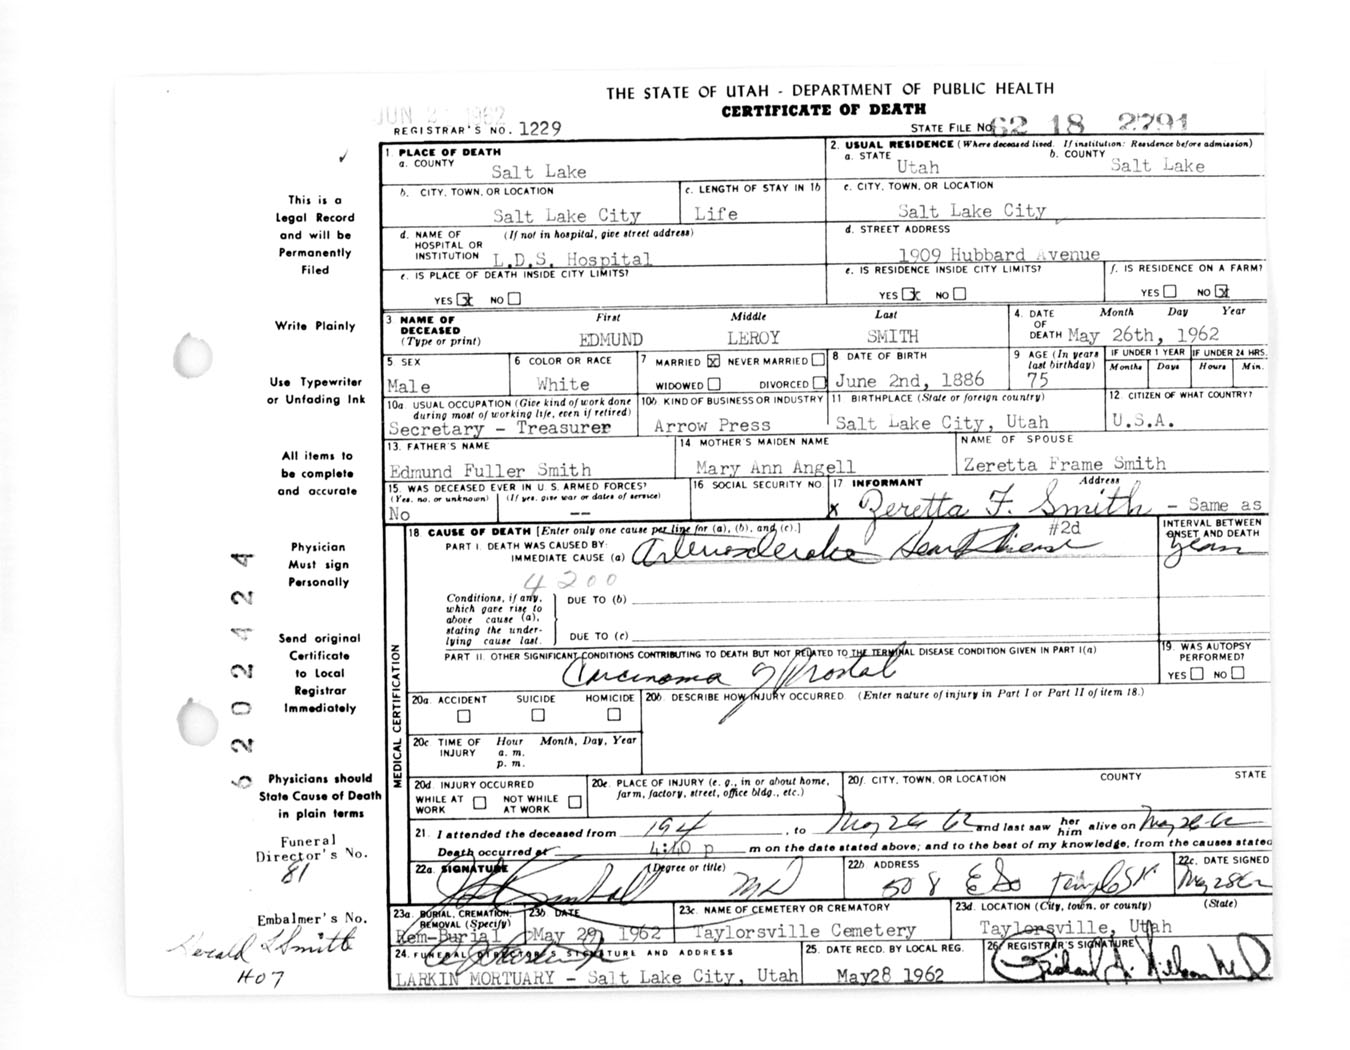 THE STATE OF UTAH - DEPARTMENT OF PUBLIC HEALTH
CERTIFICATE OF DEATH
JUN 1962
REGISTRAR'S NO. 1229
STATE FILE NO. 62 18 2791
This is a
Legal Record
and will be
Permanently
Filed
Write Plainly
Use Typewriter
or Unfading Ink
All items to
be complete
and accurate
Physician
Must sign
Personally
Send original
Certificate
to Local
Registrar
Immediately
Physicians should
State Cause of Death
in plain terms
Funeral
Director's No.
81
Embalmer's No.
Gerald L Smith
407
6202424
1 PLACE OF DEATH
a. COUNTY
Salt Lake
2. USUAL RESIDENCE (Where deceased lived. If institution: Residence before admission)
a. STATE Utah b. COUNTY Salt Lake
b. CITY, TOWN, OR LOCATION
Salt Lake City
c. LENGTH OF STAY IN 1b
Life
c. CITY, TOWN, OR LOCATION
Salt Lake City
d. NAME OF HOSPITAL OR INSTITUTION (If not in hospital, give street address)
L.D.S. Hospital
d. STREET ADDRESS
1909 Hubbard Avenue
e. IS PLACE OF DEATH INSIDE CITY LIMITS?
YES x NO
e. IS RESIDENCE INSIDE CITY LIMITS?
YES x NO
f. IS RESIDENCE ON A FARM?
YES NO x
3 NAME OF DECEASED (Type or print)
First Middle Last
EDMUND LEROY SMITH
4. DATE OF DEATH Month Day Year
May 26th, 1962
5 SEX
Male
6 COLOR OR RACE
White
7 MARRIED x NEVER MARRIED
WIDOWED DIVORCED
8 DATE OF BIRTH
June 2nd, 1886
9 AGE (In years last birthday)
75
IF UNDER 1 YEAR IF UNDER 24 HRS.
Months Days Hours Min.
10a. USUAL OCCUPATION (Give kind of work done during most of working life, even if retired)
Secretary - Treasurer
10b KIND OF BUSINESS OR INDUSTRY
Arrow Press
11 BIRTHPLACE (State or foreign country)
Salt Lake City, Utah
12. CITIZEN OF WHAT COUNTRY?
U.S.A.
13. FATHER'S NAME
Edmund Fuller Smith
14 MOTHER'S MAIDEN NAME
Mary Ann Angell
NAME OF SPOUSE
Zeretta Frame Smith
15. WAS DECEASED EVER IN U. S. ARMED FORCES?
(Yes, no, or unknown) (If yes, give war or dates of service)
No --
16 SOCIAL SECURITY NO.
17 INFORMANT Address
x Zeretta F. Smith - Same as #2d
MEDICAL CERTIFICATION
18 CAUSE OF DEATH [Enter only one cause per line for (a), (b), and (c).]
PART I. DEATH WAS CAUSED BY:
IMMEDIATE CAUSE (a) Arteriosclerotic Heart Disease
INTERVAL BETWEEN ONSET AND DEATH
years
4200
Conditions, if any, which gave rise to above cause (a), stating the underlying cause last.
DUE TO (b)
DUE TO (c)
PART II. OTHER SIGNIFICANT CONDITIONS CONTRIBUTING TO DEATH BUT NOT RELATED TO THE TERMINAL DISEASE CONDITION GIVEN IN PART I(a)
Carcinoma of Prostate
19. WAS AUTOPSY PERFORMED?
YES NO
20a. ACCIDENT SUICIDE HOMICIDE
20b. DESCRIBE HOW INJURY OCCURRED (Enter nature of injury in Part I or Part II of item 18.)
20c TIME OF INJURY Hour Month, Day, Year
a. m.
p. m.
20d INJURY OCCURRED
WHILE AT WORK NOT WHILE AT WORK
20e. PLACE OF INJURY (e. g., in or about home, farm, factory, street, office bldg., etc.)
20f. CITY, TOWN, OR LOCATION COUNTY STATE
21. I attended the deceased from 194 , to May 26 62 and last saw her him alive on May 26 62
Death occurred at 4:40 p m on the date stated above; and to the best of my knowledge, from the causes stated
22a. SIGNATURE (Degree or title)
Kimball MD
22b ADDRESS
508 E So Temple St
22c. DATE SIGNED
May 28 62
23a. BURIAL, CREMATION, REMOVAL (Specify)
Rem-Burial
23b DATE
May 29, 1962
23c. NAME OF CEMETERY OR CREMATORY
Taylorsville Cemetery
23d. LOCATION (City, town, or county) (State)
Taylorsville, Utah
24. FUNERAL DIRECTOR'S SIGNATURE AND ADDRESS
LARKIN MORTUARY - Salt Lake City, Utah
25. DATE RECD. BY LOCAL REG.
May 28 1962
26 REGISTRAR'S SIGNATURE